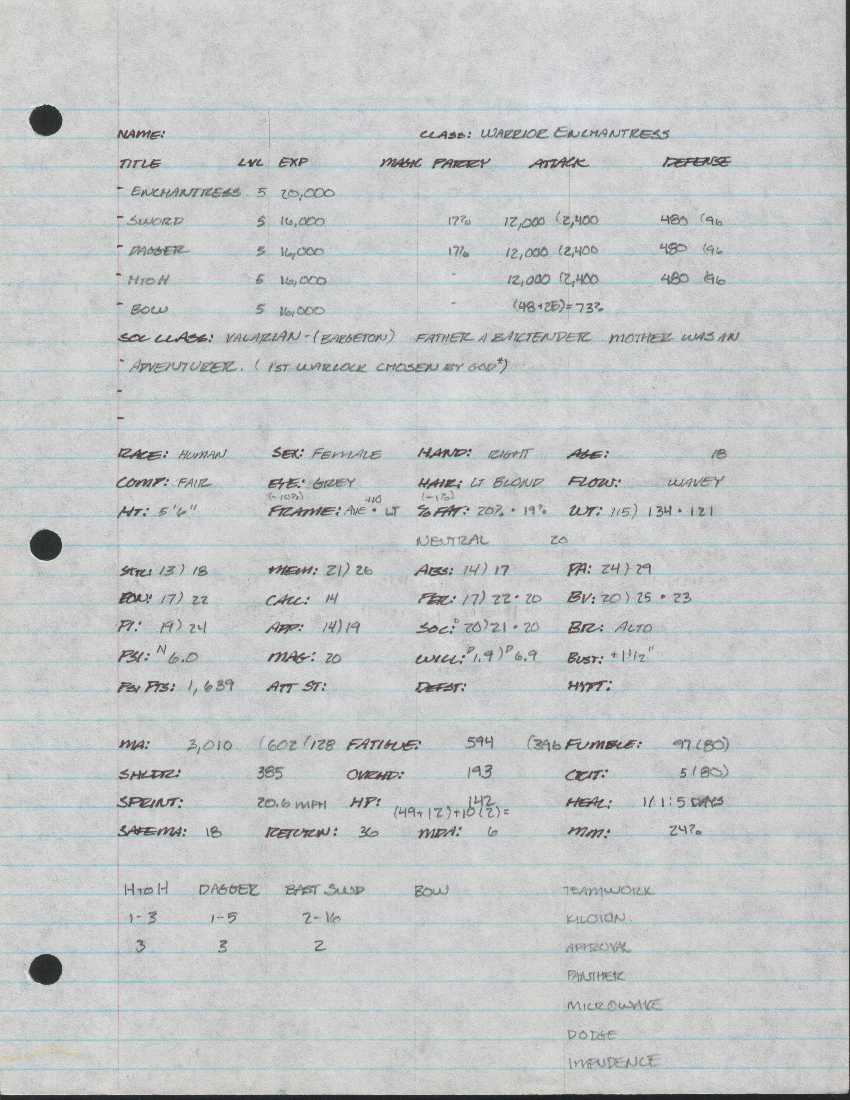 NAME: CLASS: WARRIOR ENCHANTRESS
TITLE LVL EXP MAGIC PARRY ATTACK DEFENSE
- ENCHANTRESS 5 20,000
- SWORD 5 16,000 17% 12,000 (2,400 480 (96
- DAGGER 5 16,000 17% 12,000 (2,400 480 (96
- HTOH 5 16,000 - 12,000 (2,400 480 (96
- BOW 5 16,000 - (48+25)=73%
SOC CLASS: VALARIAN-(BARGETON) FATHER A BARTENDER MOTHER WAS AN
- ADVENTURER. (1ST WARLOCK CHOSEN BY GOD*)
-
-
RACE: HUMAN SEX: FEMALE HAND: RIGHT AGE: 18
COMP: FAIR EYE: GREY HAIR: LT BLOND FLOW: WAVEY
(-10%) (-1%)
HT: 5'6" FRAME: AVE • LT % FAT: 20% • 19% WT: 115) 134 • 121
NEUTRAL 20
STR: 13) 18 MEM: 21) 26 ABS: 14) 17 PA: 24) 29
CON: 17) 22 CALC: 14 PER: 17) 22 • 20 BV: 20) 25 • 23
PI: 19) 24 APP: 14) 19 SOC: 20) 21 • 20 BR: ALTO
PSI: N 6.0 MAG: 20 WILL: P 1.9) P 6.9 BUST: +1 1/2"
PSI PTS: 1,639 ATT ST: DEF ST: HYPT:
MA: 3,010 (602 (128 FATIGUE: 594 (396 FUMBLE: 97 (80)
SHLDR: 385 OVRHD: 193 CRIT: 5 (80)
SPRINT: 20.6 MPH HP: 142 HEAL: 1/1:5 DAYS
(49+12)+10(2)=
SAFE MA: 18 RETURN: 36 MDA: 6 MM: 24%
HTOH DAGGER BAST SWD BOW TEAMWORK
1-3 1-5 2-16 KILOION
3 3 2 APPROVAL
PANTHER
MICROWAVE
DODGE
IMPUDENCE